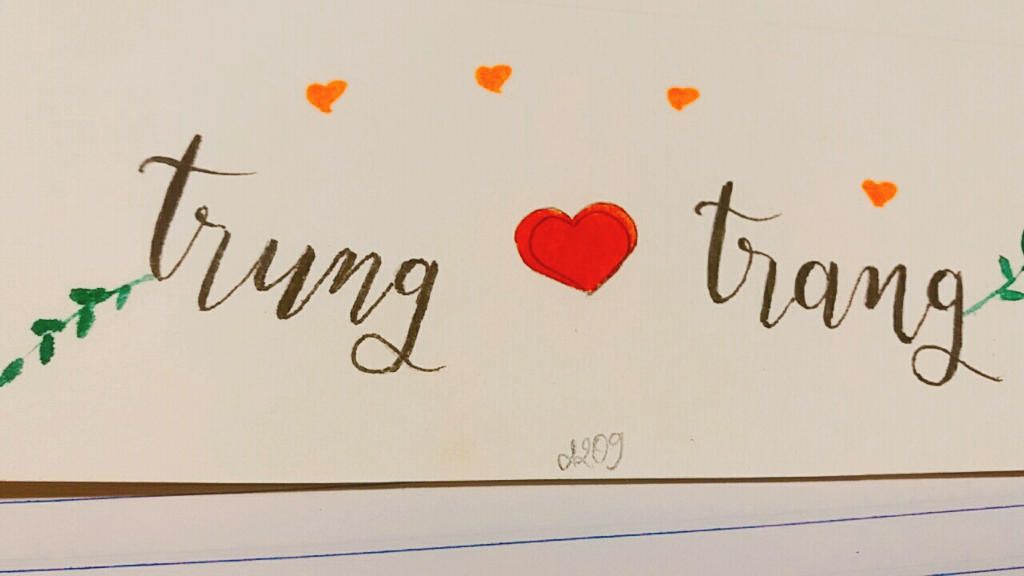 trung trang
2209